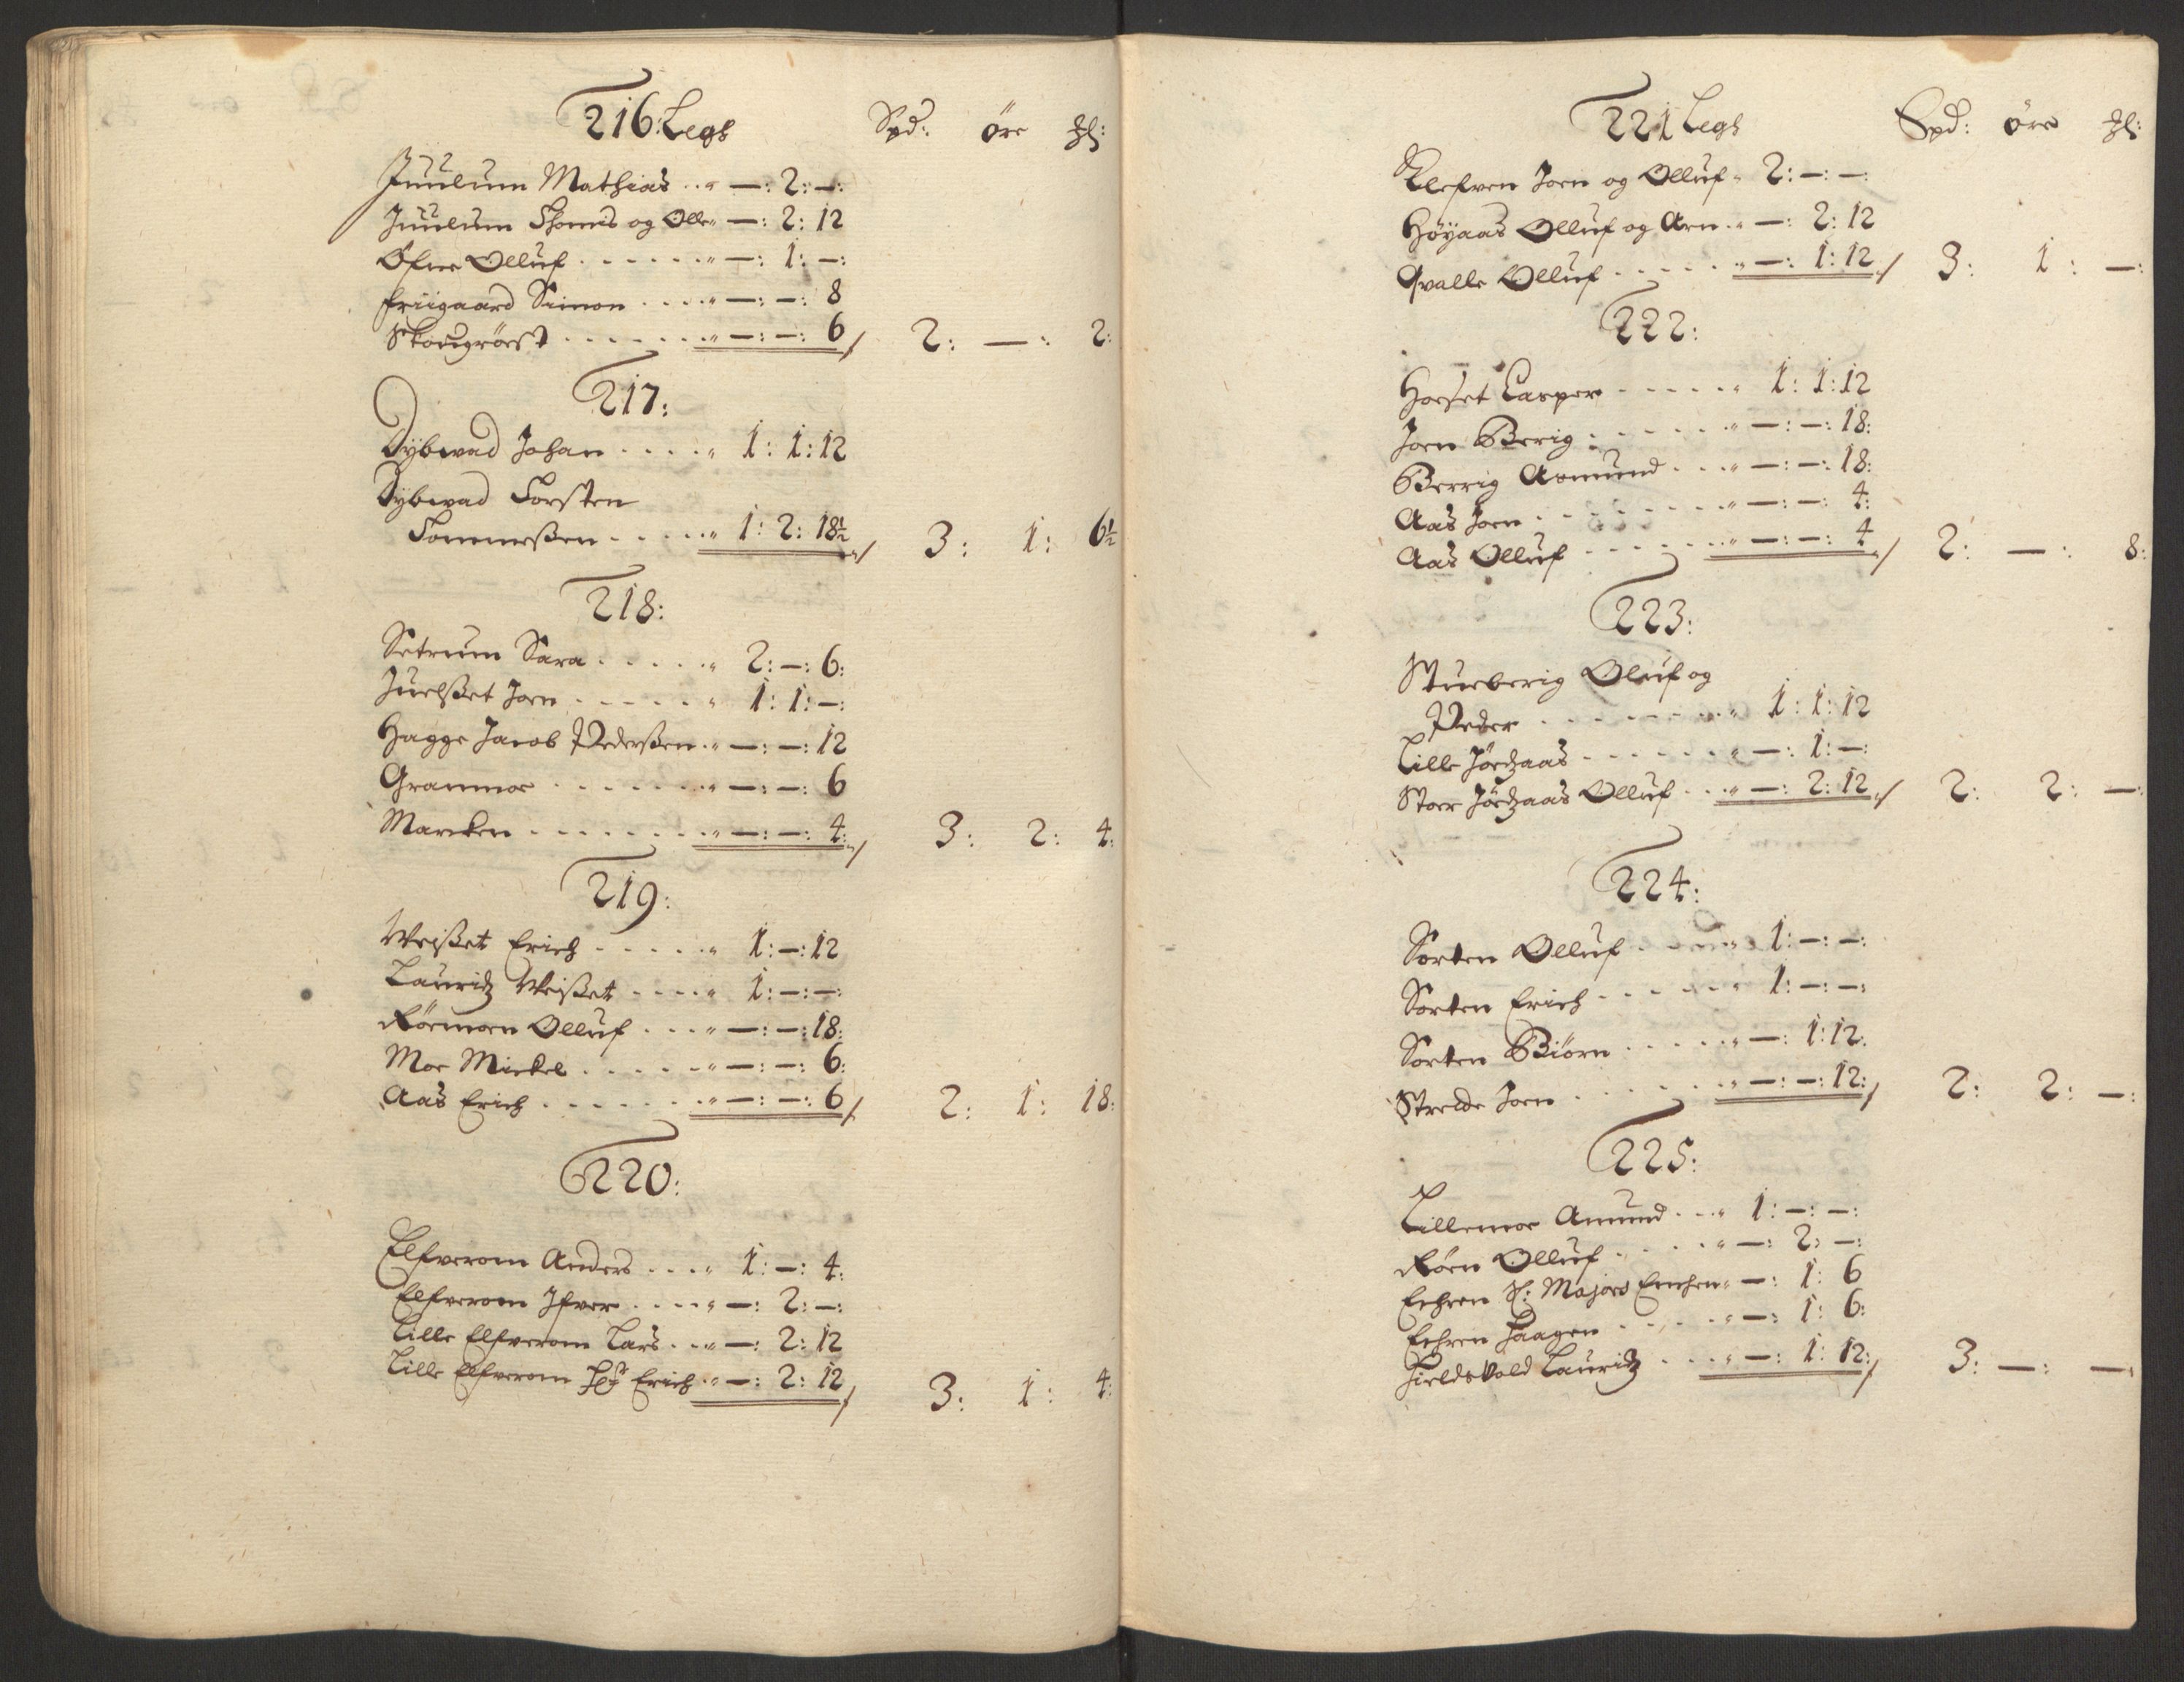 216: Legh Spd: öre ₰:
Juulum Mathias .. „ —: 2: —:
Juulum Thomis og Olle „ —: 2: 12
Öfre Olluf . . . . . . „ —: 1: —:
Friigaard Simon . . . . „ —: —: 8
Skougrörst . . . . . . „ —: —: 6 / 2: —: 2:
217:
Dÿbwad Johan . . . . „ 1: 1: 12
Dÿbwad Torsten
Tommeßen . . . . . „ 1: 2: 18½ / 3: 1: 6½
218:
Setrum Sara . . . . . „ 2: —: 6:
Juelßet Joen . . . . . „ 1: 1: —:
Hagge Jacob Pederßen . „ —: —: 12
Grammoe . . . . . . . „ —: —: 6
Marcken . . . . . . . . „ —: —: 4: / 3: 2: 4:
219:
Weißet Erich . . . . . „ 1: —: 12
Lauridz Weißet . . . . „ 1: —: —:
Röemoen Olluf . . . „ —: —: 18:
Moe Mickel . . . . . . „ —: —: 6:
Aas Erich . . . . . . . „ —: —: 6 / 2: 1: 18:
220:
Elfverom Anders . . . . „ 1: —: 4:
Elfverom Ifver . . . . „ —: 2: —:
Lille Elfverom Lars . . . „ —: 2: 12
Lille Elfverom Erich . „ —: 2: 12 / 3: 1: 4:
221 Legh Spd: öre ₰:
Klefven Joen og Olluf „ 2: —: —:
Höÿaas Olluf og Arn . „ —: 2: 12
Qvalle Olluf . . . . . „ —: 1: 12 / 3: 1: —:
222:
Hoeset Casper . . . . . „ 1: 1: 12
Joen Berig . . . . . . „ —: —: 18:
Berrig Asmund . . . „ —: —: 18:
Aas Joen . . . . . . . . „ —: —: 4:
Aas Olluf . . . . . . . „ —: —: 4 / 2: —: 8:
223:
Stueberig Oluf og
Peder . . . . . . . . „ 1: 1: 12
Lille Jördzaas . . . . . . „ —: 1: —:
Stoer Jördzaas Olluf . . „ —: 2: 12 / 2: 2: —:
224:
Sorten Olluf . . . . „ 1: —: —:
Sorten Erich . . . . . „ 1: —: —:
Sorten Biörn . . . . . „ —: 1: 12.
Stredde Joen . . . . . „ —: —: 12: / 2: 2: —:
225:
Lillemoe Amund . . . „ 1: —: —:
Röen Olluf . . . . . „ —: 2: —:
Echren Majors Enchen „ —: 1: 6
Echren Haagen . . . . . „ —: 1: 6:
Hieldsvold Lauridz . . . „ —: 1: 12: / 3: —: —: